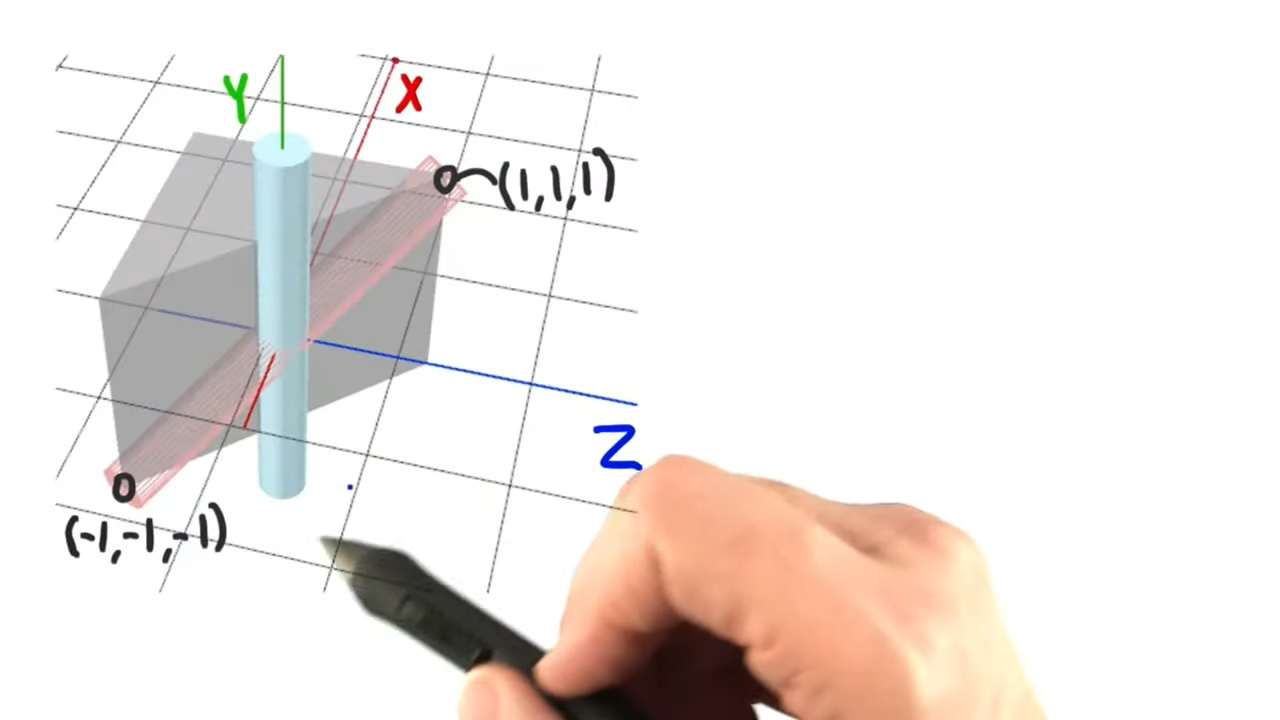 Y
X
(1,1,1)
Z
(-1,-1,-1)